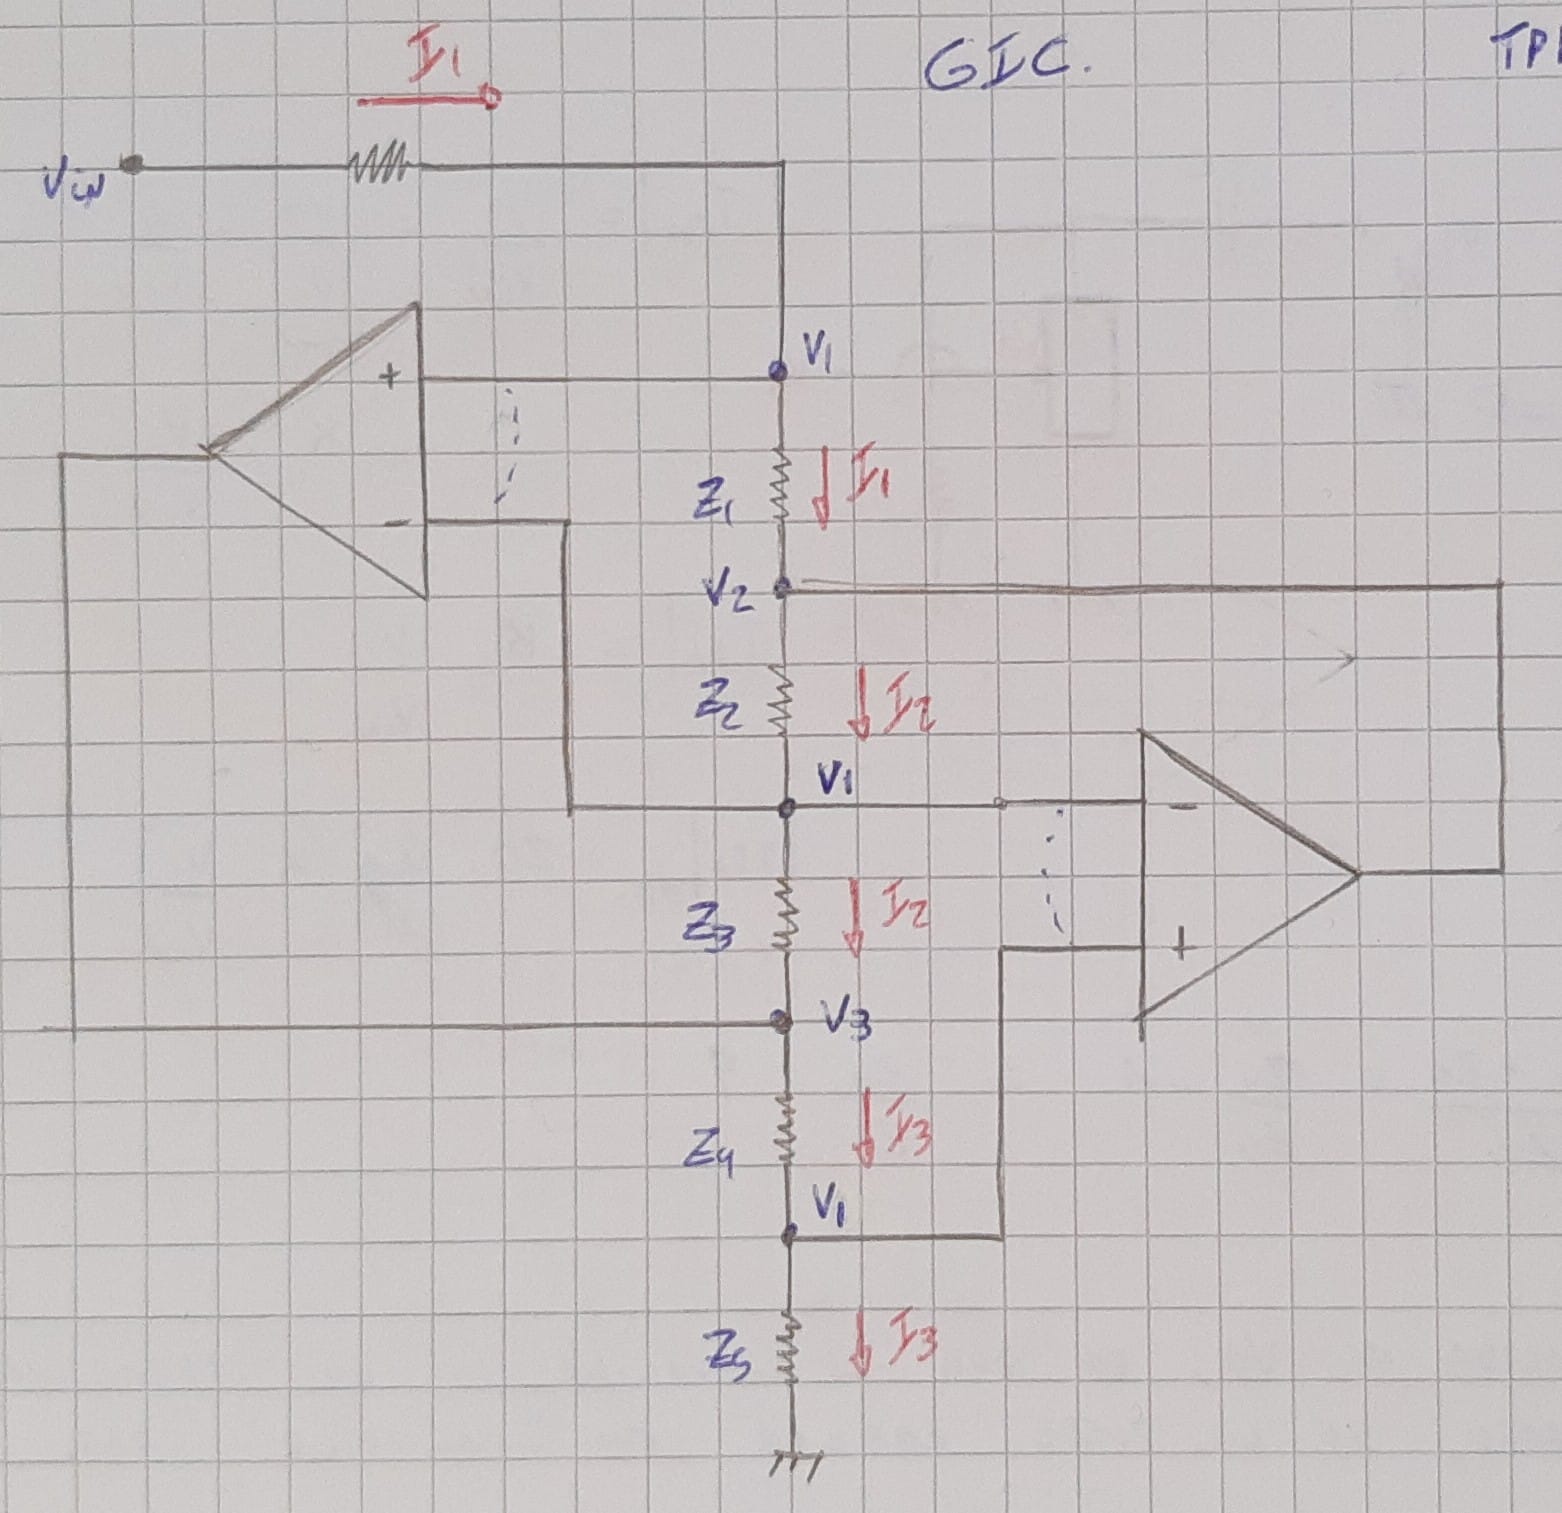 I1
GIC.
TP1
Vin
V1
+
Z1
I1
-
V2
Z2
I2
V1
-
Z3
I2
+
V3
Z4
I3
V1
Z5
I3